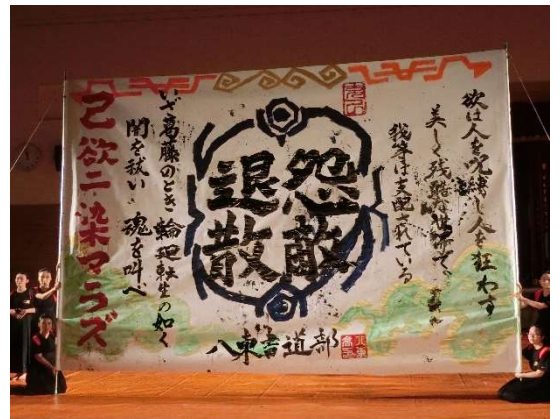 欲は人を呪縛し人を狂わす
美しく残酷な
我等は支配されている
怨敵
退散
いざ葛藤のとき 輪廻転生の如く
闇を祓い 魂を叫べ
己欲ニ染マラズ
八東書道部